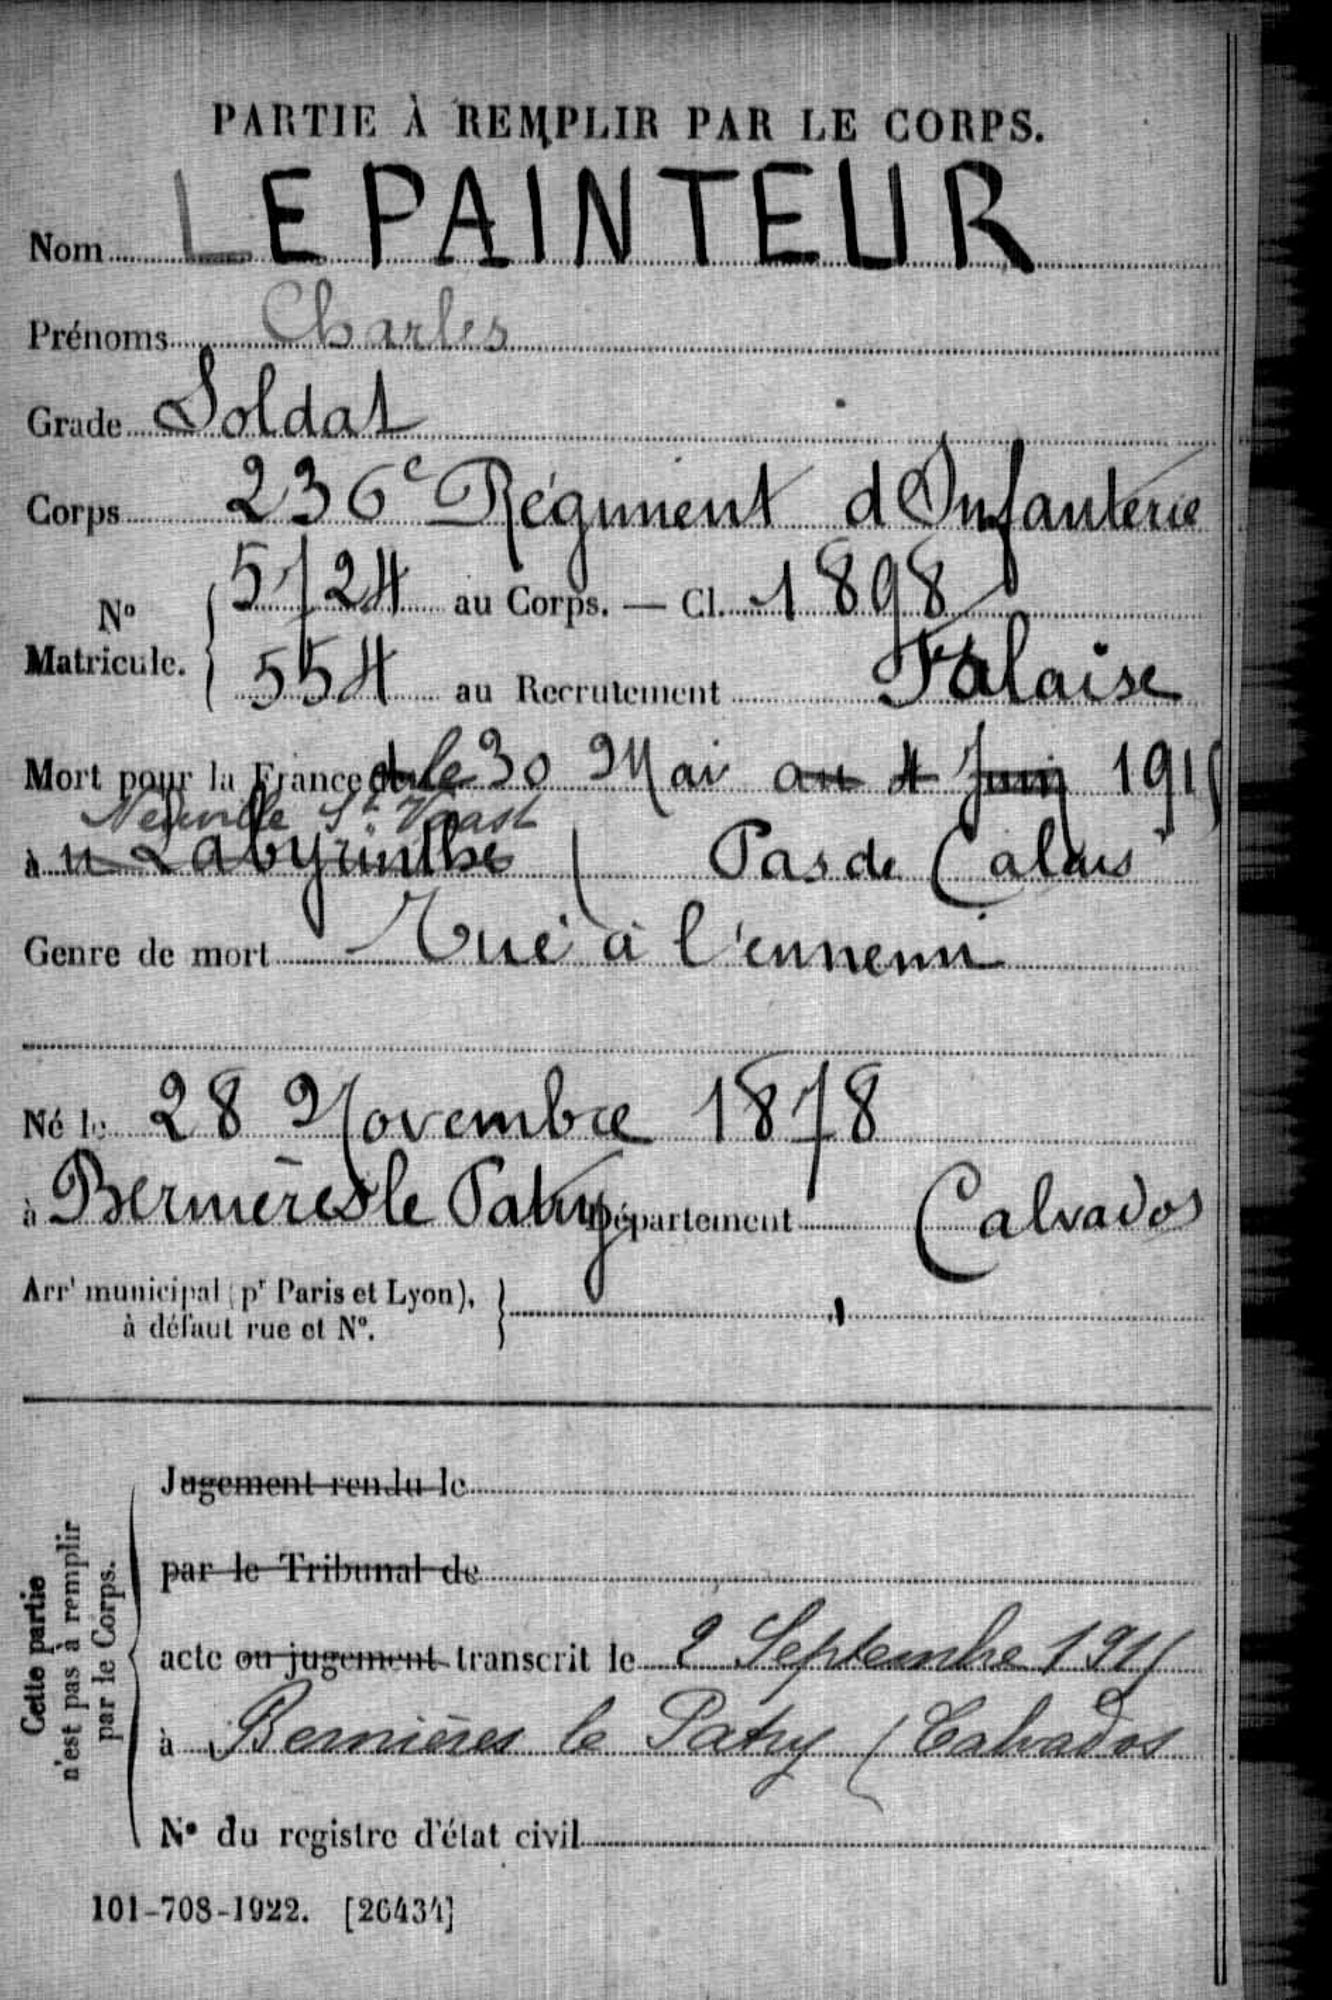 PARTIE À REMPLIR PAR LE CORPS.
Nom LEPAINTEUR
Prénoms Charles
Grade Soldat
Corps 236e Régiment d'Infanterie
No Matricule. { 5724 au Corps. — Cl. 1898
554 au Recrutement Falaise
Mort pour la France le 30 Mai au 4 Juin 1915
Neuville St Vaast
à Labyrinthe ( Pas de Calais
Genre de mort Tué à l'ennemi
Né le 28 Novembre 1878
à Bernières le Patry Département Calvados
Arrt municipal (pr Paris et Lyon),
à défaut rue et No.
Cette partie
n'est pas à remplir
par le Corps.
Jugement rendu le
par le Tribunal de
acte ou jugement transcrit le 2 Septembre 1915
à Bernières le Patry (Calvados
No du registre d'état civil
101-708-1922. [26434]